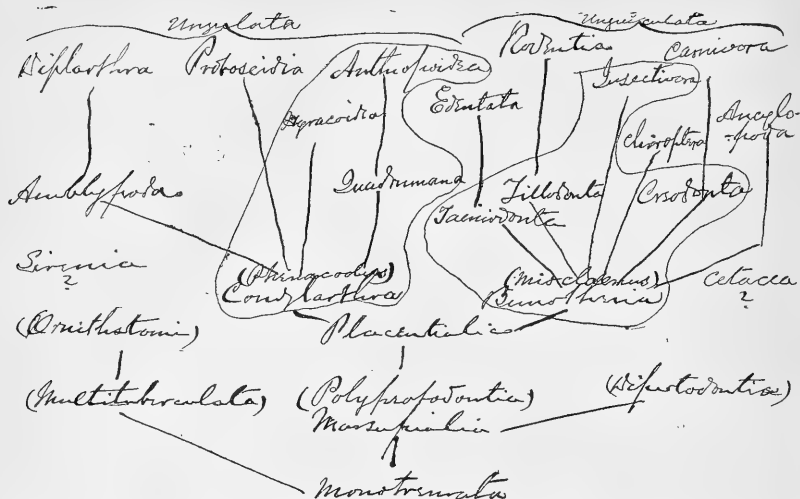 Ungulata
Unguiculata
Diplarthra Proboscidia Anthropoidea Rodentia Carnivora
Insectivora
Hyracoidia Edentata Ancylo-
-poda
Chiroptera
Quadrumana
Amblypoda Tillodonta Creodonta
Taeniodonta
Sirenia
?
(Phenacodus)
Condylarthra
(Mioclaenus)
Bunotheria
Cetacea
?
(Ornithostomi) Placentialia
(Multituberculata) (Polyprotodontia) (Diprotodontia)
Marsupialia
Monotremata